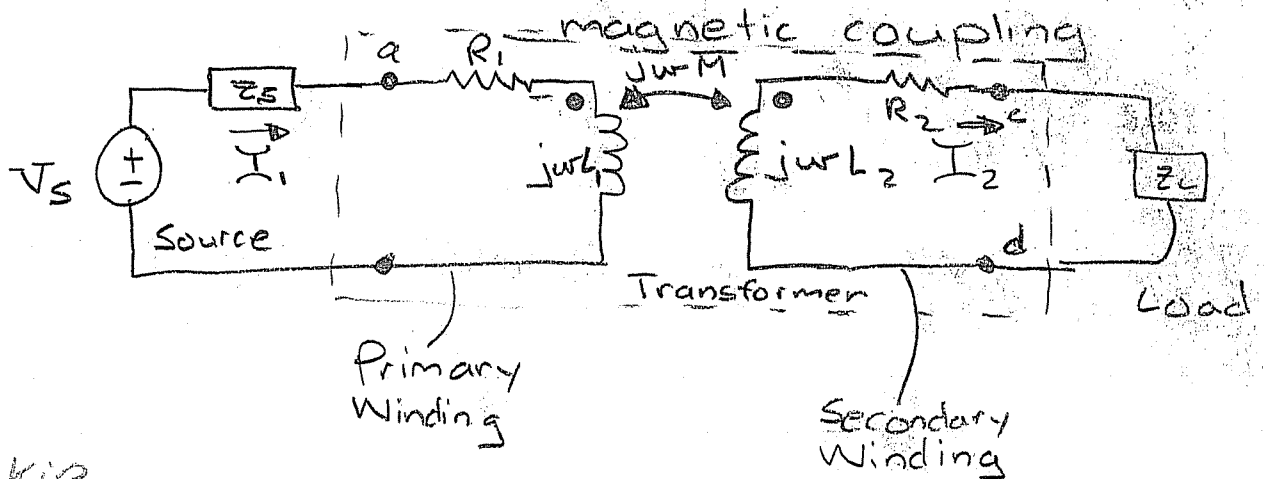 magnetic coupling
a R₁ jωM
Z_S R₂ c
I₁ jωL₁ jωL₂ I₂ Z_L
V_S + -
Source d
Transformer Load
Primary
Winding
Secondary
Winding